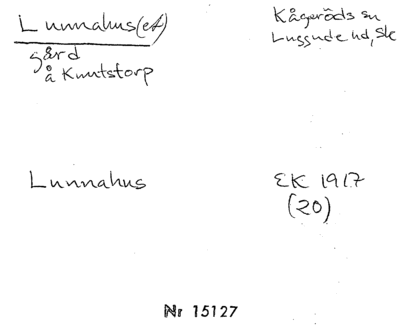 Lunnahus(et)
Kågeröds sn
Luggude hd, Sk
gård
å Knutstorp
Lunnahus
EK 1917
(20)
Nr 15127